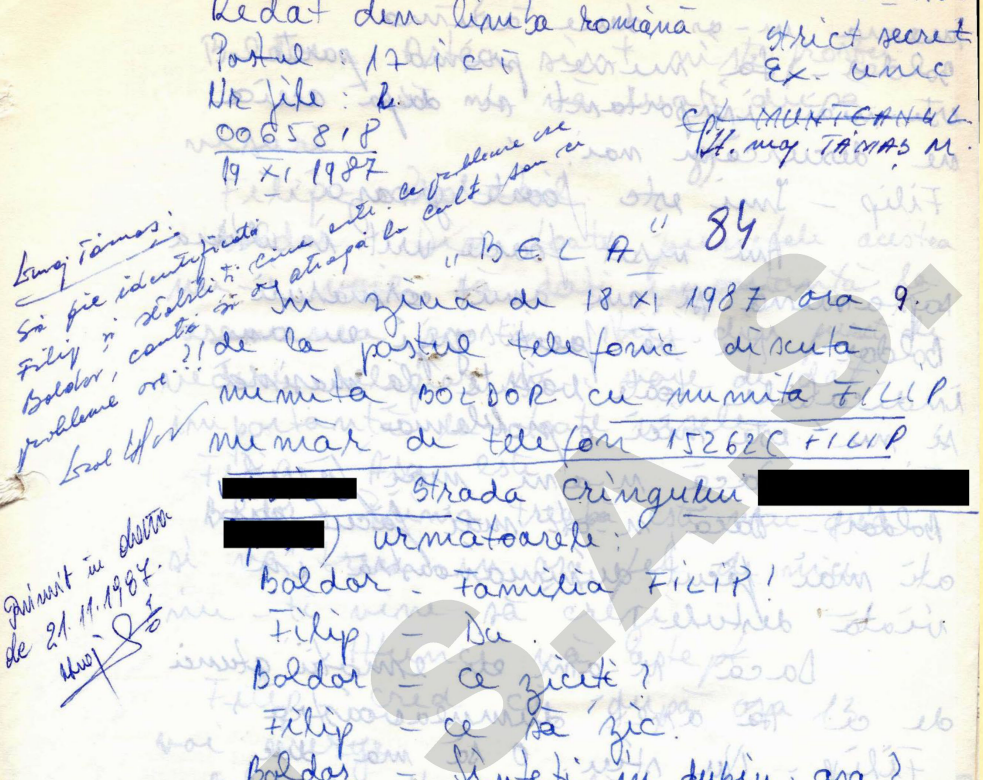 Redat din limba română
Postul : 17 i c i
Nr file : 2.
0065818
19 XI 1987
Strict secret
Ex. unic
Cpt MUNTEANU L
Lt. maj. TĂMAȘ M.
Lt. maj Tămaș:
Să fie identificată
Filip și stabiliți cine este, ce probleme are
Boldor, caută să o atragă la cult sau ce
probleme are..?!
"BELA" 84
În ziua de 18 XI 1987 ora 9.
de la postul telefonic discută
numita BOLDOR cu numita FILIP
număr de telefon 152626 FILIP
Strada Crîngului
) următoarele :
Primit în data
de 21.11.1987.
Boldor - Familia FILIP !
Filip - Da.
Boldor - Ce ziceti ?
Filip - Ce să zic.
Boldor - Sînteți în dubiu, așa ?
S.A.S.